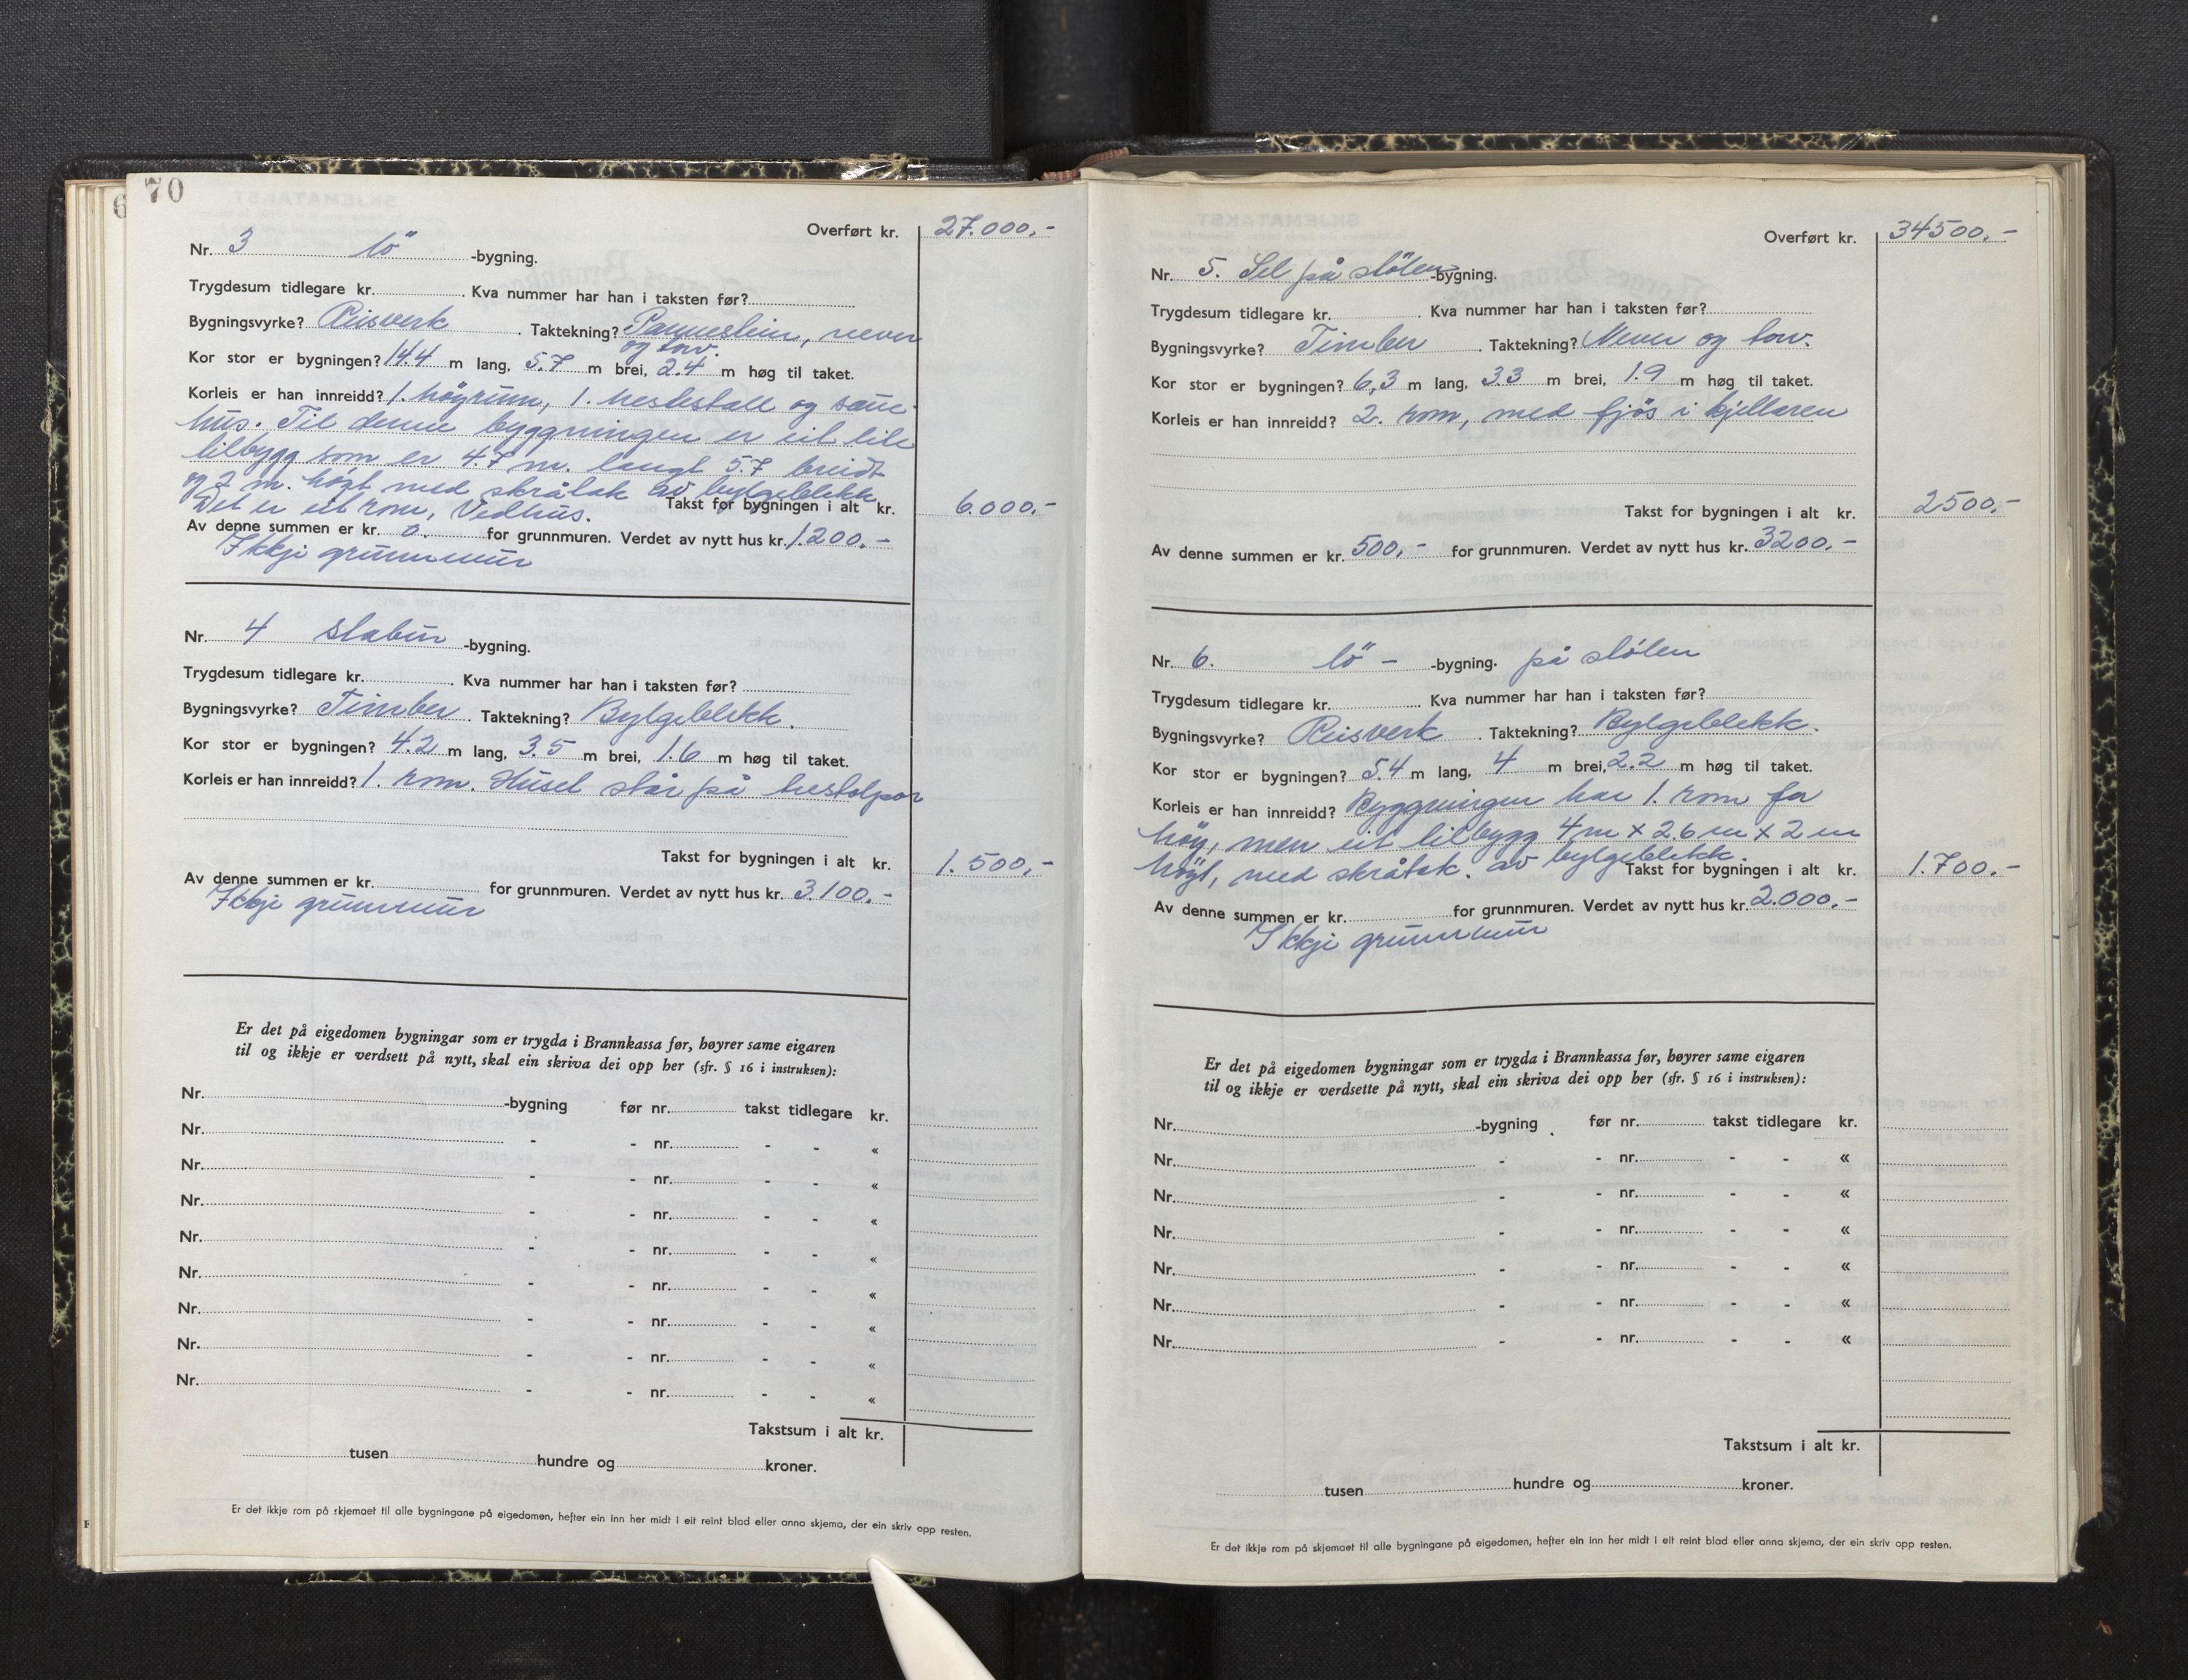 70
Overført kr. 27.000,-
Nr. 3 lö -bygning.
Trygdesum tidlegare kr. . Kva nummer har han i taksten før?
Bygningsvyrke? Reisverk . Taktekning? Pannestein, never
og torv.
Kor stor er bygningen? 14.4 m lang, 5.7 m brei, 2.4 m høg til taket.
Korleis er han innreidd? 1. höyrum, 1. hestestall og saue-
hus. Til denne byggningen er eit lite
tilbygg som er 4.7 m. langt 5.7 breidt
og 2 m. högt med skråtak av bylgeblekk
Det er eit rom, Vedhus. Takst for bygningen i alt kr. 6.000,-
Av denne summen er kr. 0. for grunnmuren. Verdet av nytt hus kr. 1.200.-
Ikkje grunnmur
Nr. 4 stabur -bygning.
Trygdesum tidlegare kr. . Kva nummer har han i taksten før?
Bygningsvyrke? Timber . Taktekning? Bylgeblekk.
Kor stor er bygningen? 4.2 m lang, 3.5 m brei, 1.6 m høg til taket.
Korleis er han innreidd? 1. rom. Huset står på trestolpar
Takst for bygningen i alt kr. 1.500,-
Av denne summen er kr. for grunnmuren. Verdet av nytt hus kr. 3.100.-
Ikkje grunnmur
Er det på eigedomen bygningar som er trygda i Brannkassa før, høyrer same eigaren
til og ikkje er verdsett på nytt, skal ein skriva dei opp her (sfr. § 16 i instruksen):
Nr. -bygning før nr. takst tidlegare kr.
Nr. - - nr. - - «
Nr. - - nr. - - «
Nr. - - nr. - - «
Nr. - - nr. - - «
Nr. - - nr. - - «
Nr. - - nr. - - «
Nr. - - nr. - - «
Nr. - - nr. - - «
Takstsum i alt kr.
tusen hundre og kroner.
Er det ikkje rom på skjemaet til alle bygningane på eigedomen, hefter ein inn her midt i eit reint blad eller anna skjema, der ein skriv opp resten.
Overført kr. 34500,-
Nr. 5. Sel på stölen -bygning.
Trygdesum tidlegare kr. . Kva nummer har han i taksten før?
Bygningsvyrke? Timber . Taktekning? Never og torv.
Kor stor er bygningen? 6,3 m lang, 3.3 m brei, 1.9 m høg til taket.
Korleis er han innreidd? 2. rom, med fjös i kjellaren
Takst for bygningen i alt kr. 2500,-
Av denne summen er kr. 500,- for grunnmuren. Verdet av nytt hus kr. 3200.-
Nr. 6. lö - -bygning. på stölen
Trygdesum tidlegare kr. . Kva nummer har han i taksten før?
Bygningsvyrke? Reisverk . Taktekning? Bylgeblekk.
Kor stor er bygningen? 5.4 m lang, 4 m brei, 2.2 m høg til taket.
Korleis er han innreidd? Byggningen har 1. rom for
höy, men eit tilbygg 4 m x 2,6 m x 2 m
högt, med skråtak. av bylgeblekk.
Takst for bygningen i alt kr. 1.700.-
Av denne summen er kr. for grunnmuren. Verdet av nytt hus kr. 2.000.-
Ikkje grunnmur
Er det på eigedomen bygningar som er trygda i Brannkassa før, høyrer same eigaren
til og ikkje er verdsette på nytt, skal ein skriva dei opp her (sfr. § 16 i instruksen):
Nr. -bygning før nr. takst tidlegare kr.
Nr. - - nr. - - «
Nr. - - nr. - - «
Nr. - - nr. - - «
Nr. - - nr. - - «
Nr. - - nr. - - «
Nr. - - nr. - - «
Takstsum i alt kr.
tusen hundre og kroner.
Er det ikkje rom på skjemaet til alle bygningane på eigedomen, hefter ein inn her midt i eit reint blad eller anna skjema, der ein skriv opp resten.